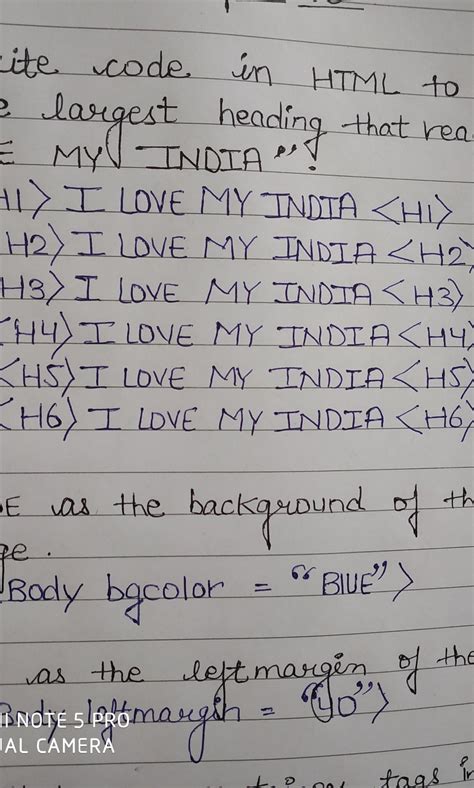 ite code in HTML to
e largest heading that rea
E MY INDIA"!
H1> I LOVE MY INDIA <H1>
H2> I LOVE MY INDIA <H2>
H3> I LOVE MY INDIA <H3>
<H4> I LOVE MY INDIA <H4>
<H5> I LOVE MY INDIA <H5>
<H6> I LOVE MY INDIA <H6>
E as the background of th
ge.
Body bgcolor = "BlUE">
as the leftmargin of the
Body leftmargin = "40">
II NOTE 5 PRO
UAL CAMERA
tags in